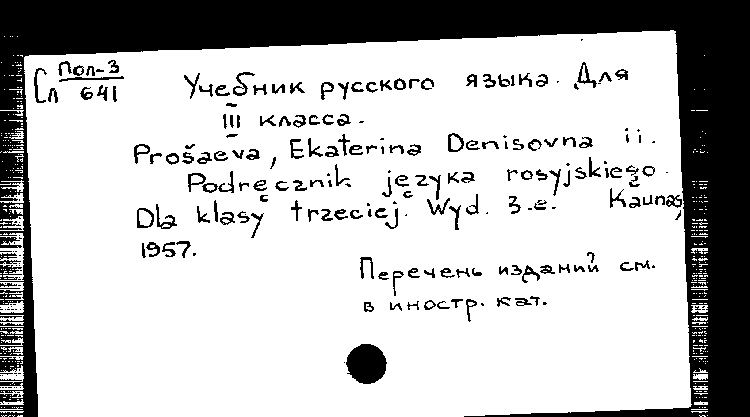 Пол-3
Сл 641
Учебник русского языка. Для
III класса.
Prošaeva, Ekaterina Denisovna i i.
Podręcznik języka rosyjskiego.
Dla klasy trzeciej. Wyd. 3-e. Kaunas,
1957.
Перечень изданий см.
в иностр. кат.